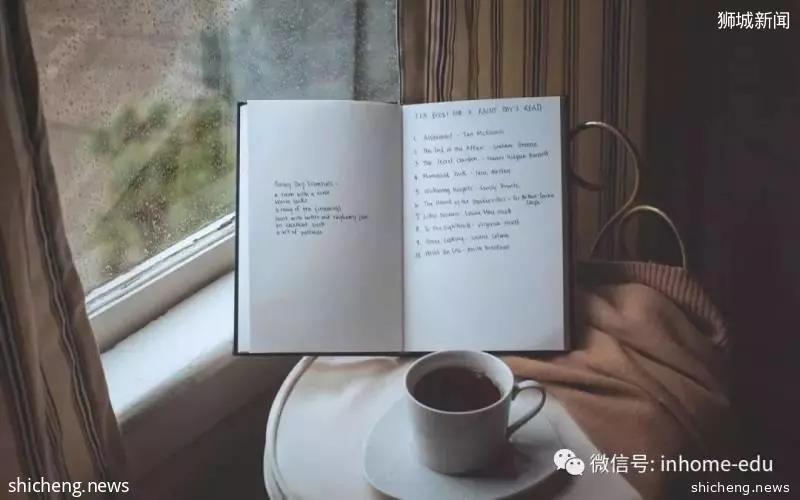 狮城新闻
Rainy Day Essentials -
a room with a view
warm socks
a mug of tea (steaming)
toast with butter and raspberry jam
an excellent book
a bit of patience
TEN BOOKS FOR A RAINY DAY'S READ
1. Atonement - Ian McEwan
2. The End of the Affair - Graham Greene
3. The Secret Garden - Frances Hodgson Burnett
4. Mansfield Park - Jane Austen
5. Wuthering Heights - Emily Bronte
6. The Hound of the Baskervilles - Sir Arthur Conan
Doyle
7. Little Women - Louisa May Alcott
8. To the Lighthouse - Virginia Woolf
9. Home Cooking - Laurie Colwin
10. Hotel du Lac - Anita Brookner
微信号: inhome-edu
shicheng.news
shicheng.news